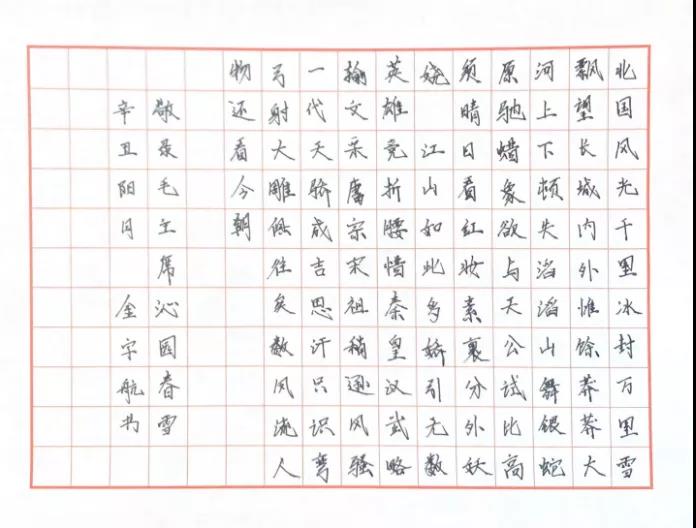 北国风光千里冰封万里雪
飘望长城内外惟馀莽莽大
河上下顿失滔滔山舞银蛇
原驰蜡象欲与天公试比高
须晴日看红妆素裹分外妖
绕 江山如此多娇引无数
英雄竞折腰惜秦皇汉武略
输文采唐宗宋祖稍逊风骚
一代天骄成吉思汗只识弯
弓射大雕俱往矣数风流人
物还看今朝
敬录毛主席沁园春雪
辛丑阳月 金宇航书